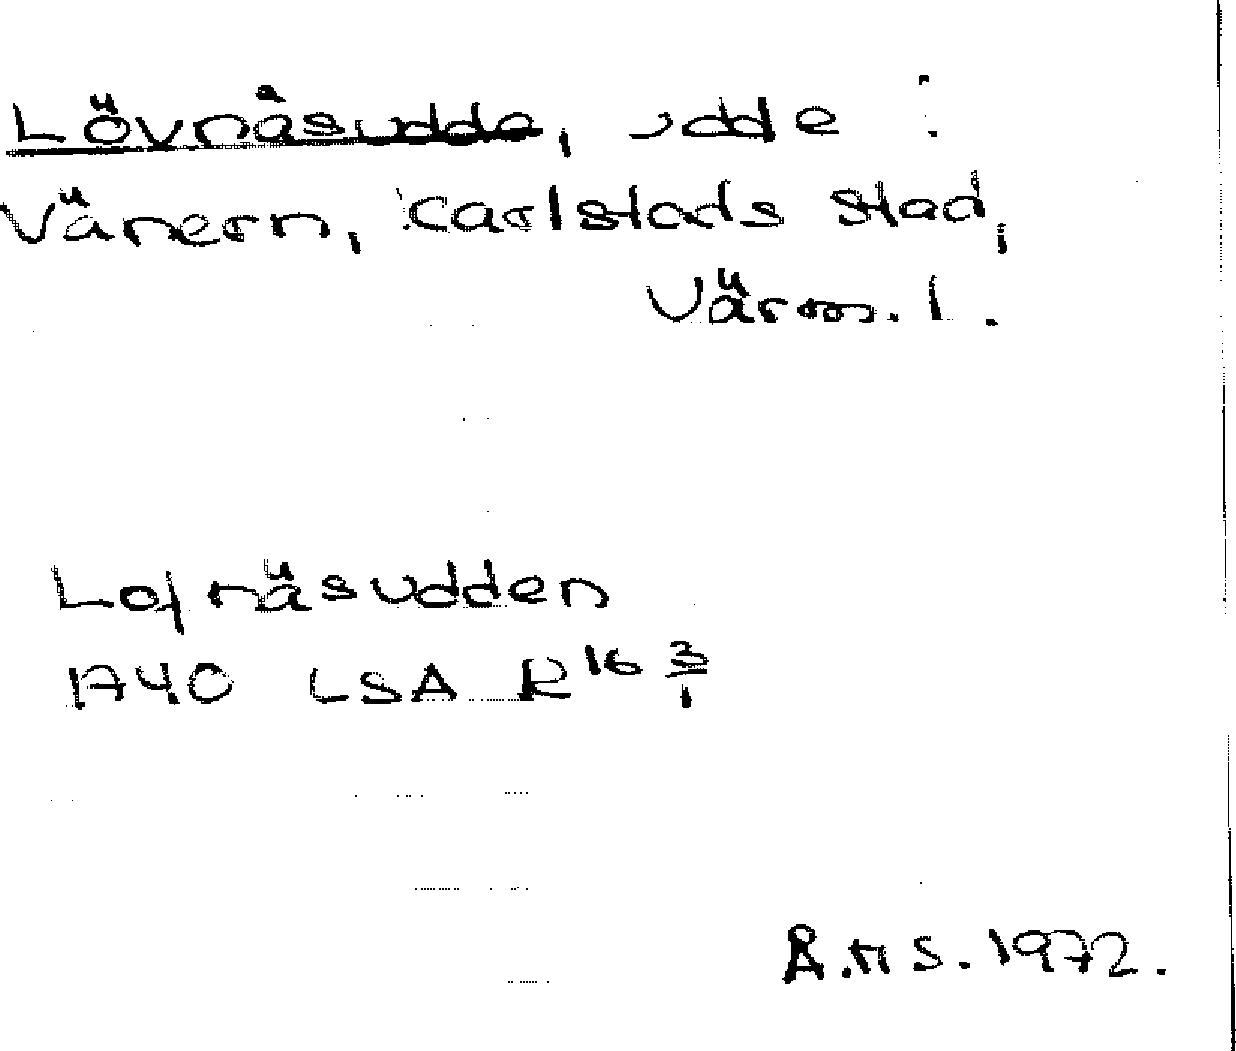 Lövnäsudde, udde i
Vänern, Karlstads stad,
Värml.
Lofnäsudden
1740 LSA R16 3/1
Å.H S. 1972.